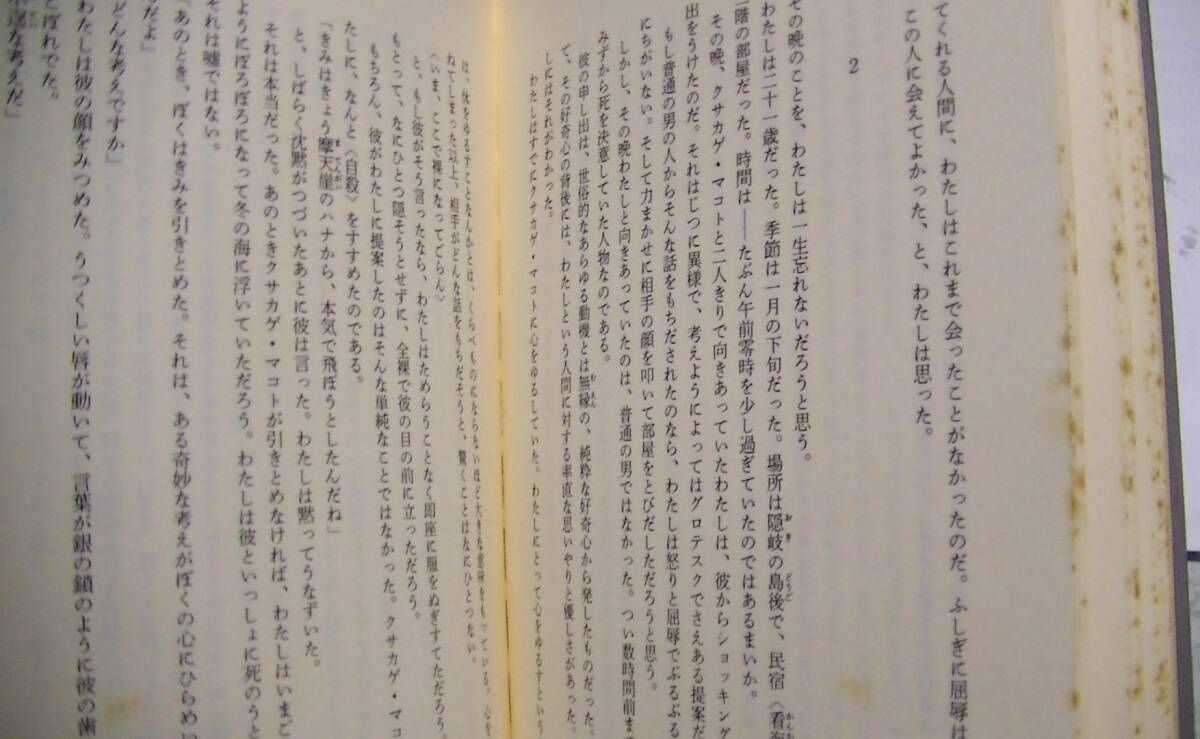 てくれる人間に、わたしはこれまで会ったことがなかったのだ。ふしぎに屈辱は
この人に会えてよかった、と、わたしは思った。
2
その晩のことを、わたしは一生忘れないだろうと思う。
わたしは二十一歳だった。季節は一月の下旬だった。場所は隠岐の島後で、民宿〈看海
二階の部屋だった。時間は――たぶん午前零時を少し過ぎていたのではあるまいか。
その晩、クサカゲ・マコトと二人きりで向きあっていたわたしは、彼からショッキング
出をうけたのだ。それはじつに異様で、考えようによってはグロテスクでさえある提案だ
もし普通の男の人からそんな話をもちだされたのなら、わたしは怒りと屈辱でぶるぶる
にちがいない。そして力まかせに相手の顔を叩いて部屋をとびだしただろうと思う。
しかし、その晩わたしと向きあっていたのは、普通の男ではなかった。つい数時間前ま
みずから死を決意していた人物なのである。
彼の申し出は、世俗的なあらゆる動機とは無縁の、純粋な好奇心から発したものだった。
て、その好奇心の背後には、わたしという人間に対する率直な思いやりと優しさがあった。
しにはそれがわかった。
わたしはすでにクサカゲ・マコトに心をゆるしていた。わたしにとって心をゆるすという
は、体をゆるすことなんかとは、くらべものにならないほど大きな意味をもっている。心を
ねてしまった以上、相手がどんな話をもちだそうと、驚くことはなにひとつない。
〈いま、ここで裸になってごらん〉
と、もし彼がそう言ったなら、わたしはためらうことなく即座に服をぬぎすてただろう。
もとって、なにひとつ隠そうとせずに、全裸で彼の目の前に立っただろう。
もちろん、彼がわたしに提案したのはそんな単純なことではなかった。クサカゲ・マコ
たしに、なんと〈自殺〉をすすめたのである。
「きみはきょう摩天崖のハナから、本気で飛ぼうとしたんだね」
と、しばらく沈黙がつづいたあとに彼は言った。わたしは黙ってうなずいた。
それは本当だった。あのときクサカゲ・マコトが引きとめなければ、わたしはいまご
ようにぼろぼろになって冬の海に浮いていただろう。わたしは彼といっしょに死のうと
それは嘘ではない。
「あのとき、ぼくはきみを引きとめた。それは、ある奇妙な考えがぼくの心にひらめい
だよ」
「どんな考えですか」
わたしは彼の顔をみつめた。うつくしい唇が動いて、言葉が銀の鎖のように彼の歯
ぼれでた。
な考えだ」